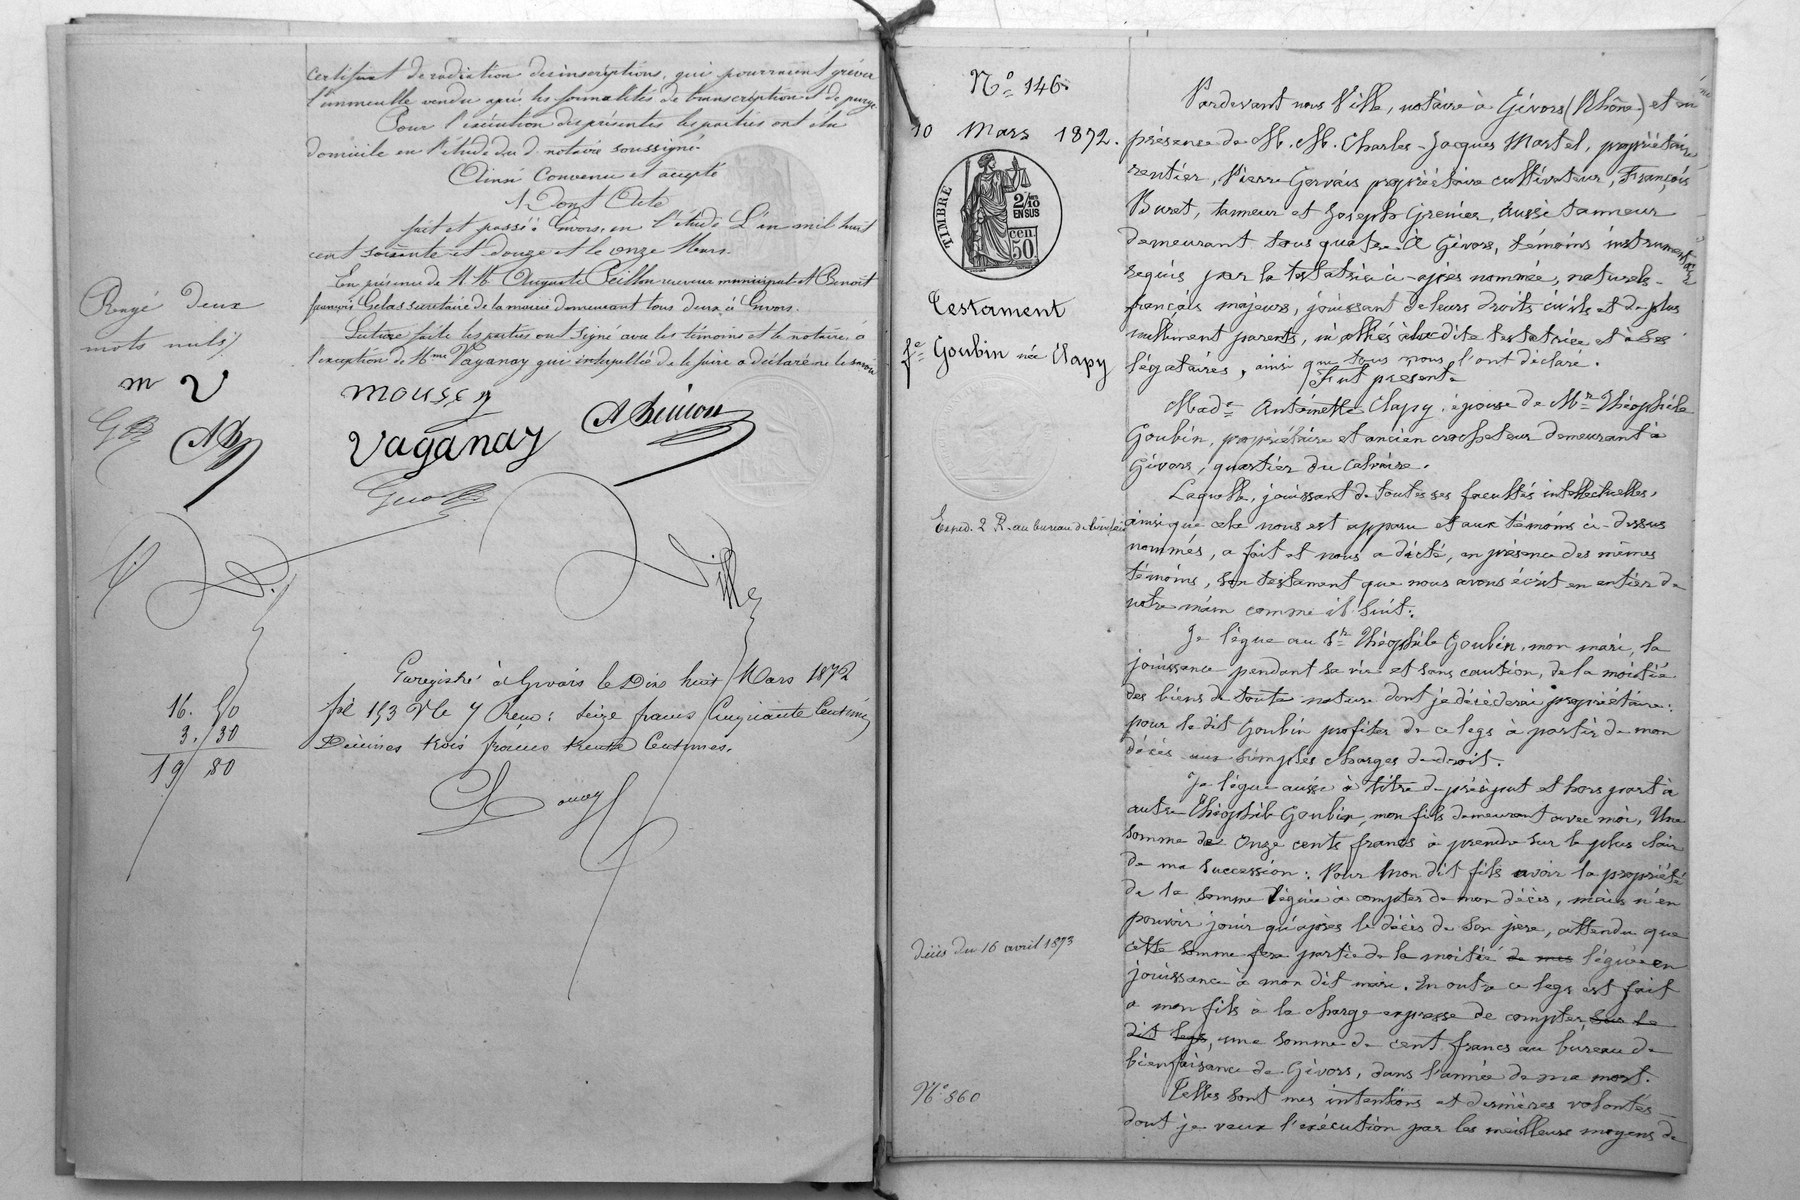 certificat de radiation des inscriptions, qui pourraient grever
l'immeuble vendu après les formalités de transcription et de purge
Pour l'exécution des présentes les parties ont élu
domicile en l'étude du d. notaire soussigné.
Ainsi Convenu et accepté
Dont Acte
fait et passé à Givors, en l'étude L'an mil huit
cent soixante et douze et le onze Mars.
En présence de M. M. Auguste Peillon receveur municipal et Benoit
françois Gelas secrétaire de la mairie demeurant tous deux à Givors.
Lecture faite les parties ont signé avec les témoins et le notaire, à
l'exception de Mme Vaganay qui interpellée de le faire a déclaré ne le savoir
Rayé deux
mots nuls
m V
mousey
Vaganay
Ville
Enregistré à Givors le Dix huit Mars 1872
fol 153 V Cle 7 Reçu: Seize francs Cinquante Centimes
Décimes trois francs trente Centimes.
16. 50
3. 30
19 80
N° 146.
10 Mars 1872.
TIMBRE
2/10
EN SUS
50 cen
Testament
fe Goubin née Clapy
Exped. 2 R. au bureau de bienfaisce
décès du 16 avril 1873
N° 560
Pardevant nous Ville, notaire à Givors (Rhône) et en
présence de M. M. Charles-Jacques Martel, propriétaire
rentier, Pierre Gervais propriétaire cultivateur, François
Buret, tanneur et Joseph Grenier, aussi tanneur
demeurant tous quatre à Givors, témoins instrumentaires
requis par la testatrice ci-après nommée, naturels
français majeurs, jouissant de leurs droits civils et de plus
nullement parents, ni alliés à ladite testatrice et à ses
légataires, ainsi que tous nous l'ont déclaré.
Fut présente
Made Antoinette Clapy, épouse de Mr Théophile
Goubin, propriétaire et ancien crocheteur demeurant à
Givors, quartier du Calvaire.
Laquelle, jouissant de toutes ses facultés intellectuelles,
ainsi que cela nous est apparu et aux témoins ci-dessus
nommés, a fait et nous a dicté, en présence des mêmes
témoins, son testament que nous avons écrit en entier de
notre main comme il suit:
Je lègue au Sr Théophile Goubin, mon mari, la
jouissance pendant sa vie et sans caution, de la moitié
des biens de toute nature dont je décèderai propriétaire:
pour le dit Goubin profiter de ce legs à partir de mon
décès aux simples charges de droit.
Je lègue aussi à titre de préciput et hors part à
autre Théophile Goubin, mon fils demeurant avec moi, Une
somme de Onze cents francs à prendre sur le plus clair
de ma succession: Pour mon dit fils avoir la propriété
de la somme léguée à compter de mon décès, mais n'en
pouvoir jouir qu'après le décès de son père, attendu que
cette somme fera partie de la moitié de mes léguée en
jouissance à mon dit mari. En outre ce legs est fait
à mon fils à la charge expresse de compter, sur le
dit legs, une somme de cent francs au bureau de
bienfaisance de Givors, dans l'année de ma mort.
Telles sont mes intentions et dernières volontés
dont je veux l'exécution par les meilleurs moyens de